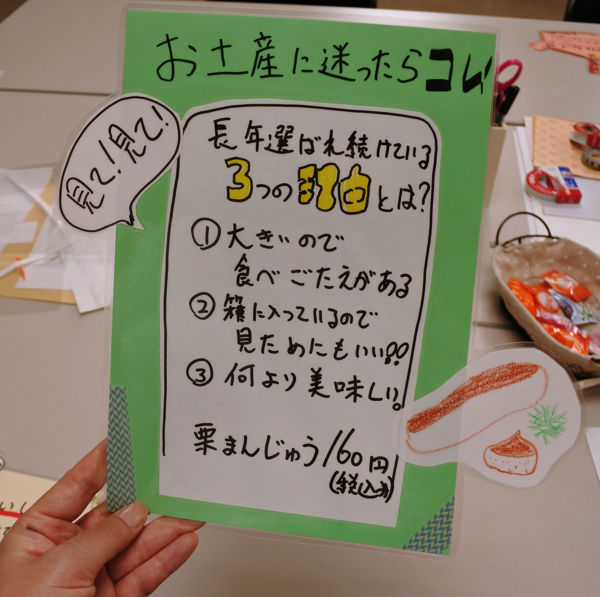 お土産に迷ったらコレ
見て!見て!
長年選ばれ続けている
3つの理由とは?
① 大きいので
食べごたえがある
② 箱に入っているので
見ためにもいい!!
③ 何より美味しい。
栗まんじゅう160円
(税込み)